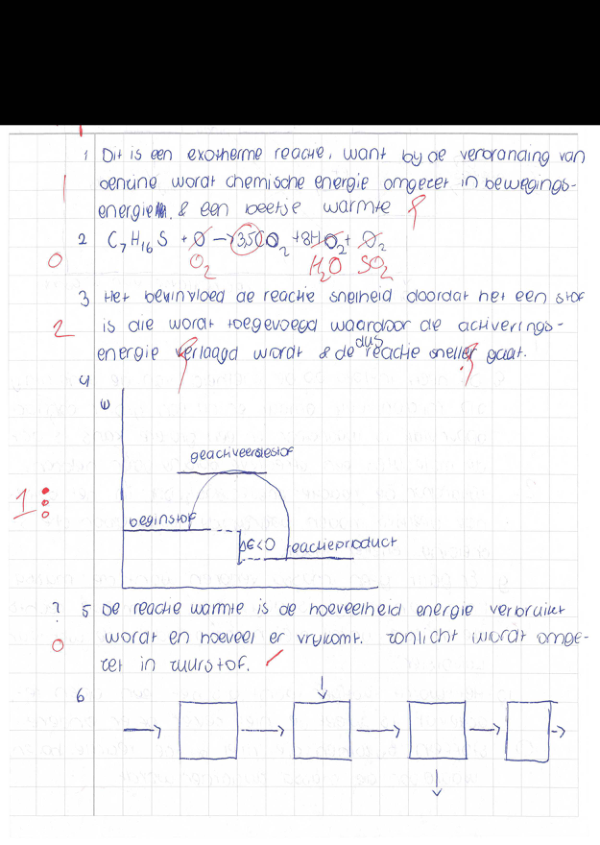 1 Dit is een exotherme reactie, want by de verbranding van
1 benzine wordt chemische energie omgezet in bewegings-
energie & een beetje warmte
2 C7H16S + O → 3,5CO2 + 8HO2 + O2
0 O2 H2O SO2
3 Het beïnvloed de reactie snelheid doordat het een stof
2 is die wordt toegevoegd waardoor de activerings-
dus
energie verlaagd wordt & de reactie sneller gaat.
4
geactiveerdestof
1
beginstof
ΔE<0 reactieproduct
? 5 De reactie warmte is de hoeveelheid energie verbruikt
0 wordt en hoeveel er vrykomt. zonlicht wordt omge-
zet in zuurstof.
6